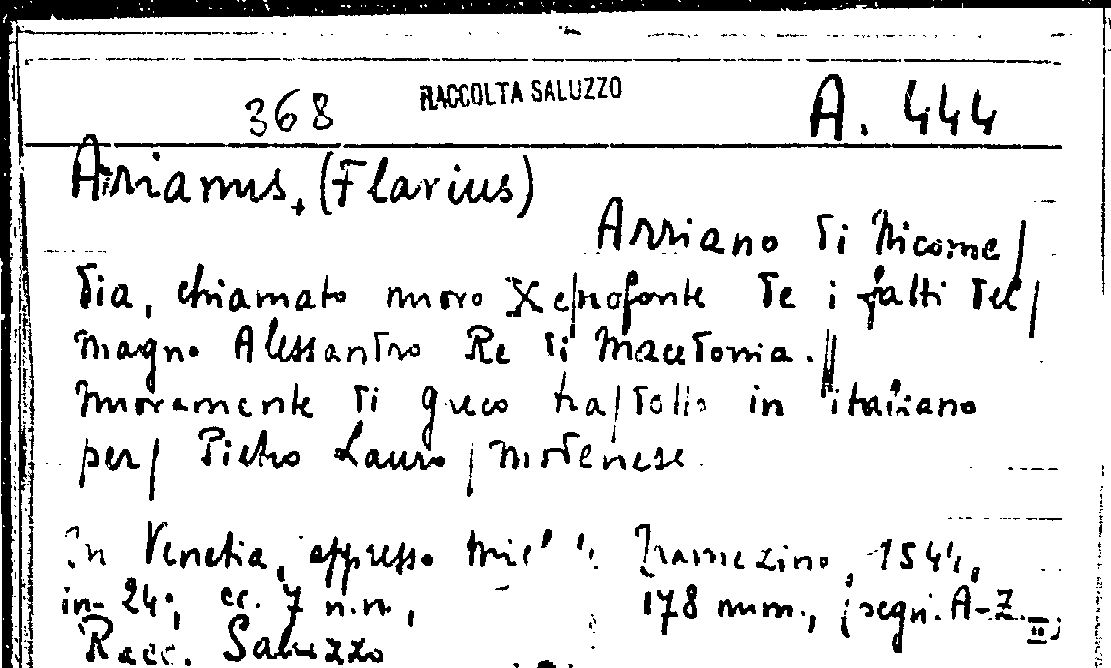 368 RACCOLTA SALUZZO A. 444
Arrianus, (Flavius)
Arriano di Nicome/
dia, chiamato nuovo Xe/nofonte de i fatti del/
magno Alessandro Re di Macedonia.//
nuovamente di greco tra/dotto in italiano
per/ Pietro Lauro/modenese
In Venetia, appresso Tramezino, 1544,
in-24°, cc. 7 n.n., 178 num., (segn. A-Z
Racc. Saluzzo